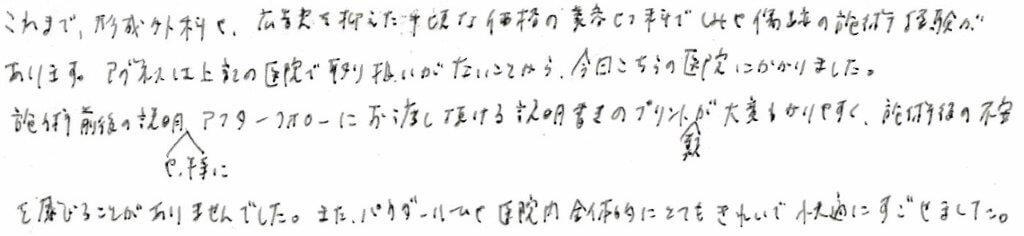 これまで、形成外科や、広告費を抑えた手頃な価格の美容ヒフ科でシミや傷跡の施術経験が
あります。アグネスは上記の医院で取り扱いがないことから、今回こちらの医院にかかりました。
施術前後の説明、アフターフォローにお渡し頂ける説明書きのプリントが大変わかりやすく、施術後の不安
や、丁寧に 類
を感じることがありませんでした。また、パウダールームや医院内全体的にとてもきれいで快適にすごせました。